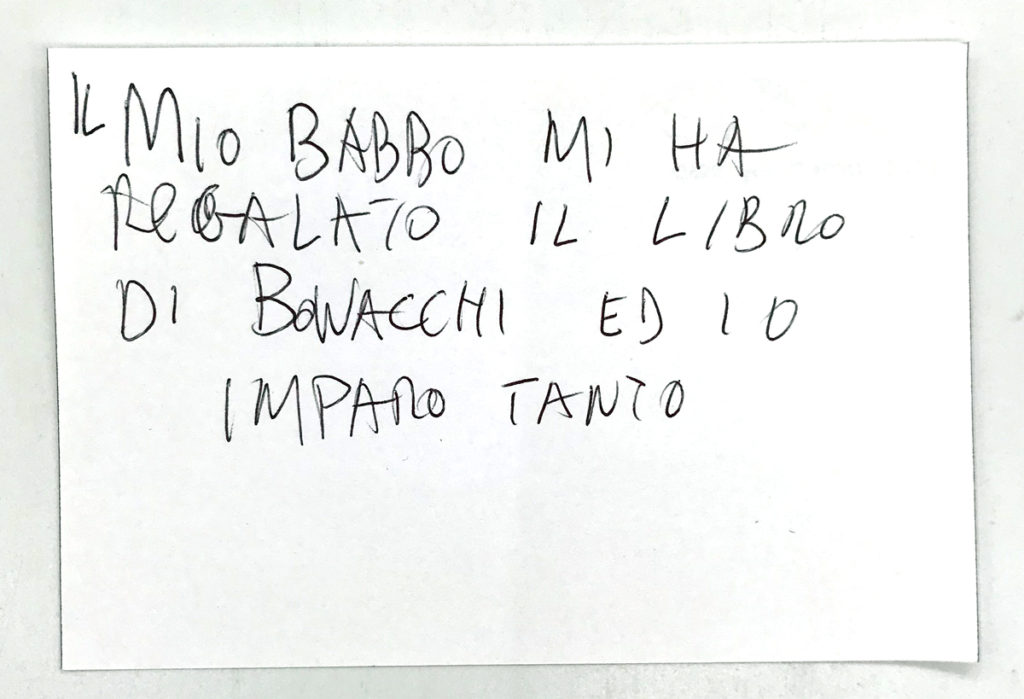 IL MIO BABBO MI HA
REGALATO IL LIBRO
DI BONACCHI ED IO
IMPARO TANTO